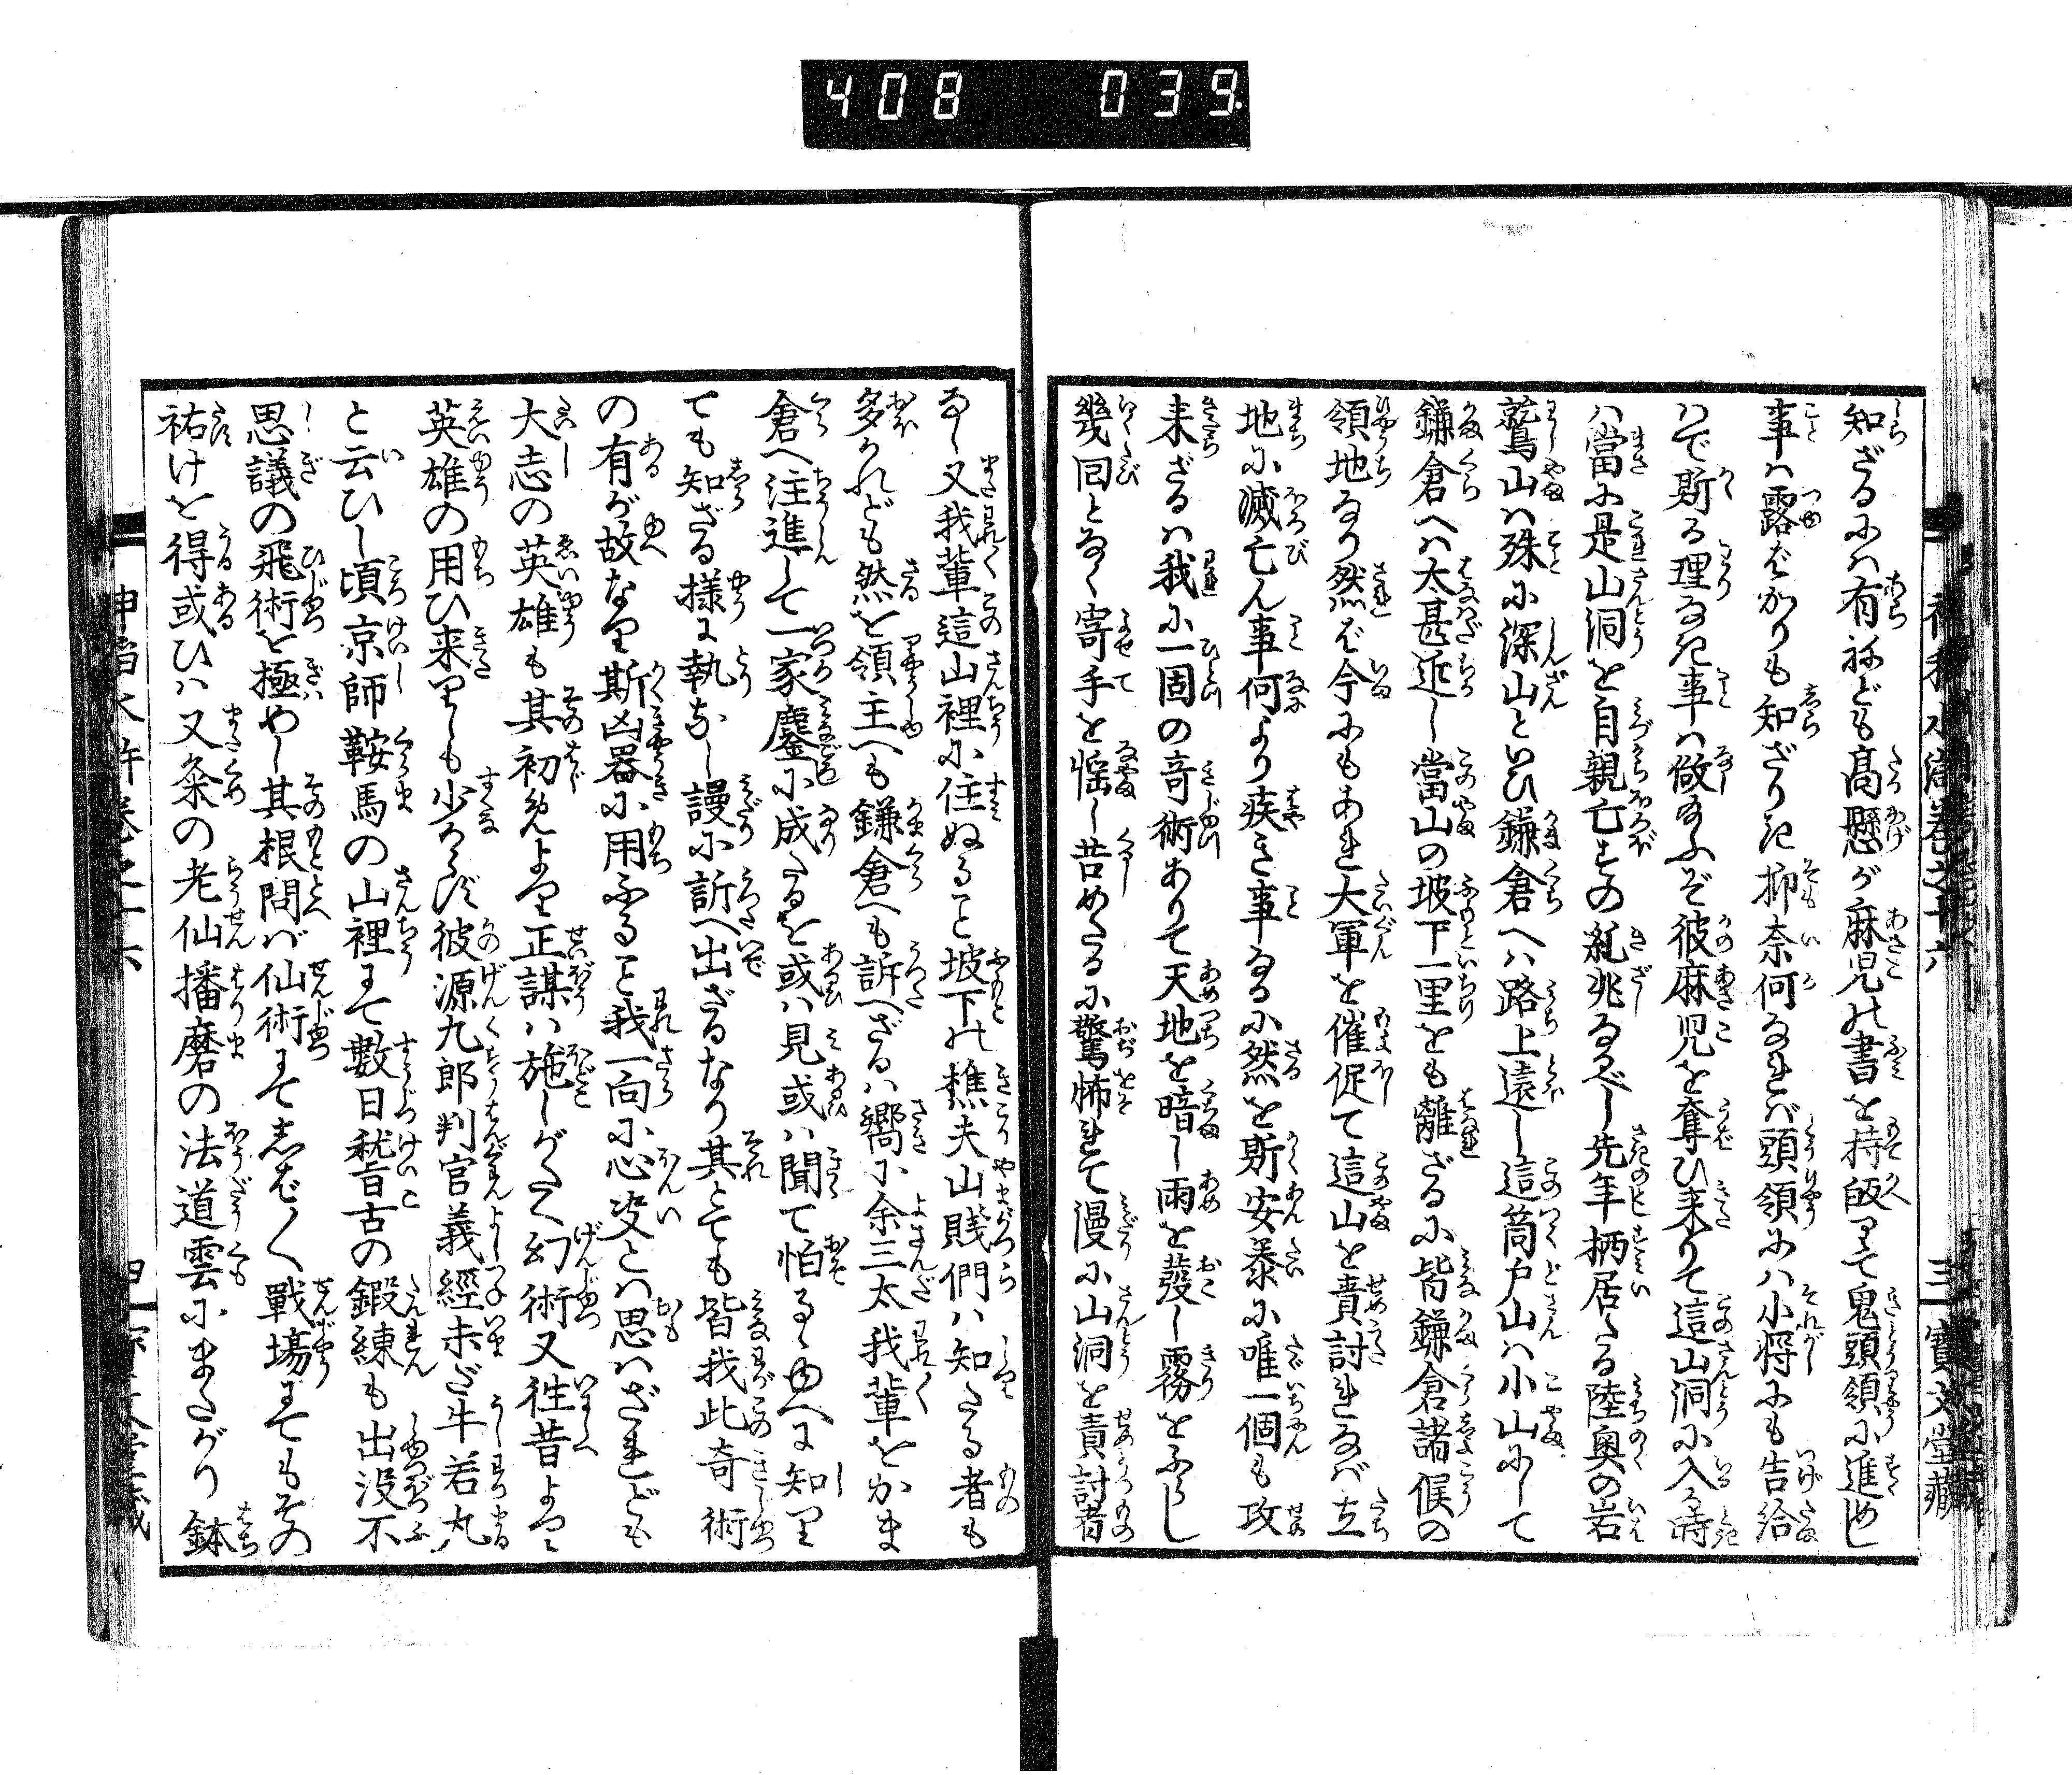 408 039
知ざるに八有ねども高懸が麻児の書を持皈りて鬼頭領に進めし
事ハ露ばかりも知ざりき抑奈何なれバ頭領にハ小將にも告給
ハで斯る理なき事ハ做給ふぞ彼麻児を奪ひ来りて這山洞に入る時
ハ當に是山洞を自親亡すの兆なるべし先年栖居たる陸奥の岩
鷲山ハ殊に深山といひ鎌倉へハ路上遠し這筒戸山ハ小山にして
鎌倉へハ太甚近し當山の坡下一里をも離ざるに皆鎌倉諸侯の
領地なり然ば今にもあれ大軍を催促て這山を責討れなバ立
地に滅亡ん事何より疾き事なるに然を斯安泰に唯一個も攻
来ざるハ我に一固の竒術ありて天地を暗し雨を發し霧をふらし
幾回となく寄手を惱し苦めたるに驚怖れて漫に山洞を責討者
なし又我輩這山裡に住ぬること坡下の樵夫山賤們ハ知たる者も
多かれども然を領主へも鎌倉へも訴へざるハ嚮に余三太我輩をかま
倉へ注進して一家鏖に成たるを或ハ見或ハ聞て怕るゝゆへに知り
ても知ざる様に執なし謾に訴へ出ざるなり其とても皆我此奇術
の有が故なり斯凶器に用ふること我一向に心姿とハ思ハざれども
大志の英雄も其初めより正謀ハ施しがたく幻術又徃昔より
英雄の用ひ来りしも少からず彼源九郎判官義經未だ牛若丸
と云ひし頃京師鞍馬の山裡にて數日稽古の鍛練も出没不
思議の飛術を極めし其根問バ仙術にてしばく戰場にてもその
祐けを得或ひハ又粂の老仙播磨の法道雲にまたがり鉢